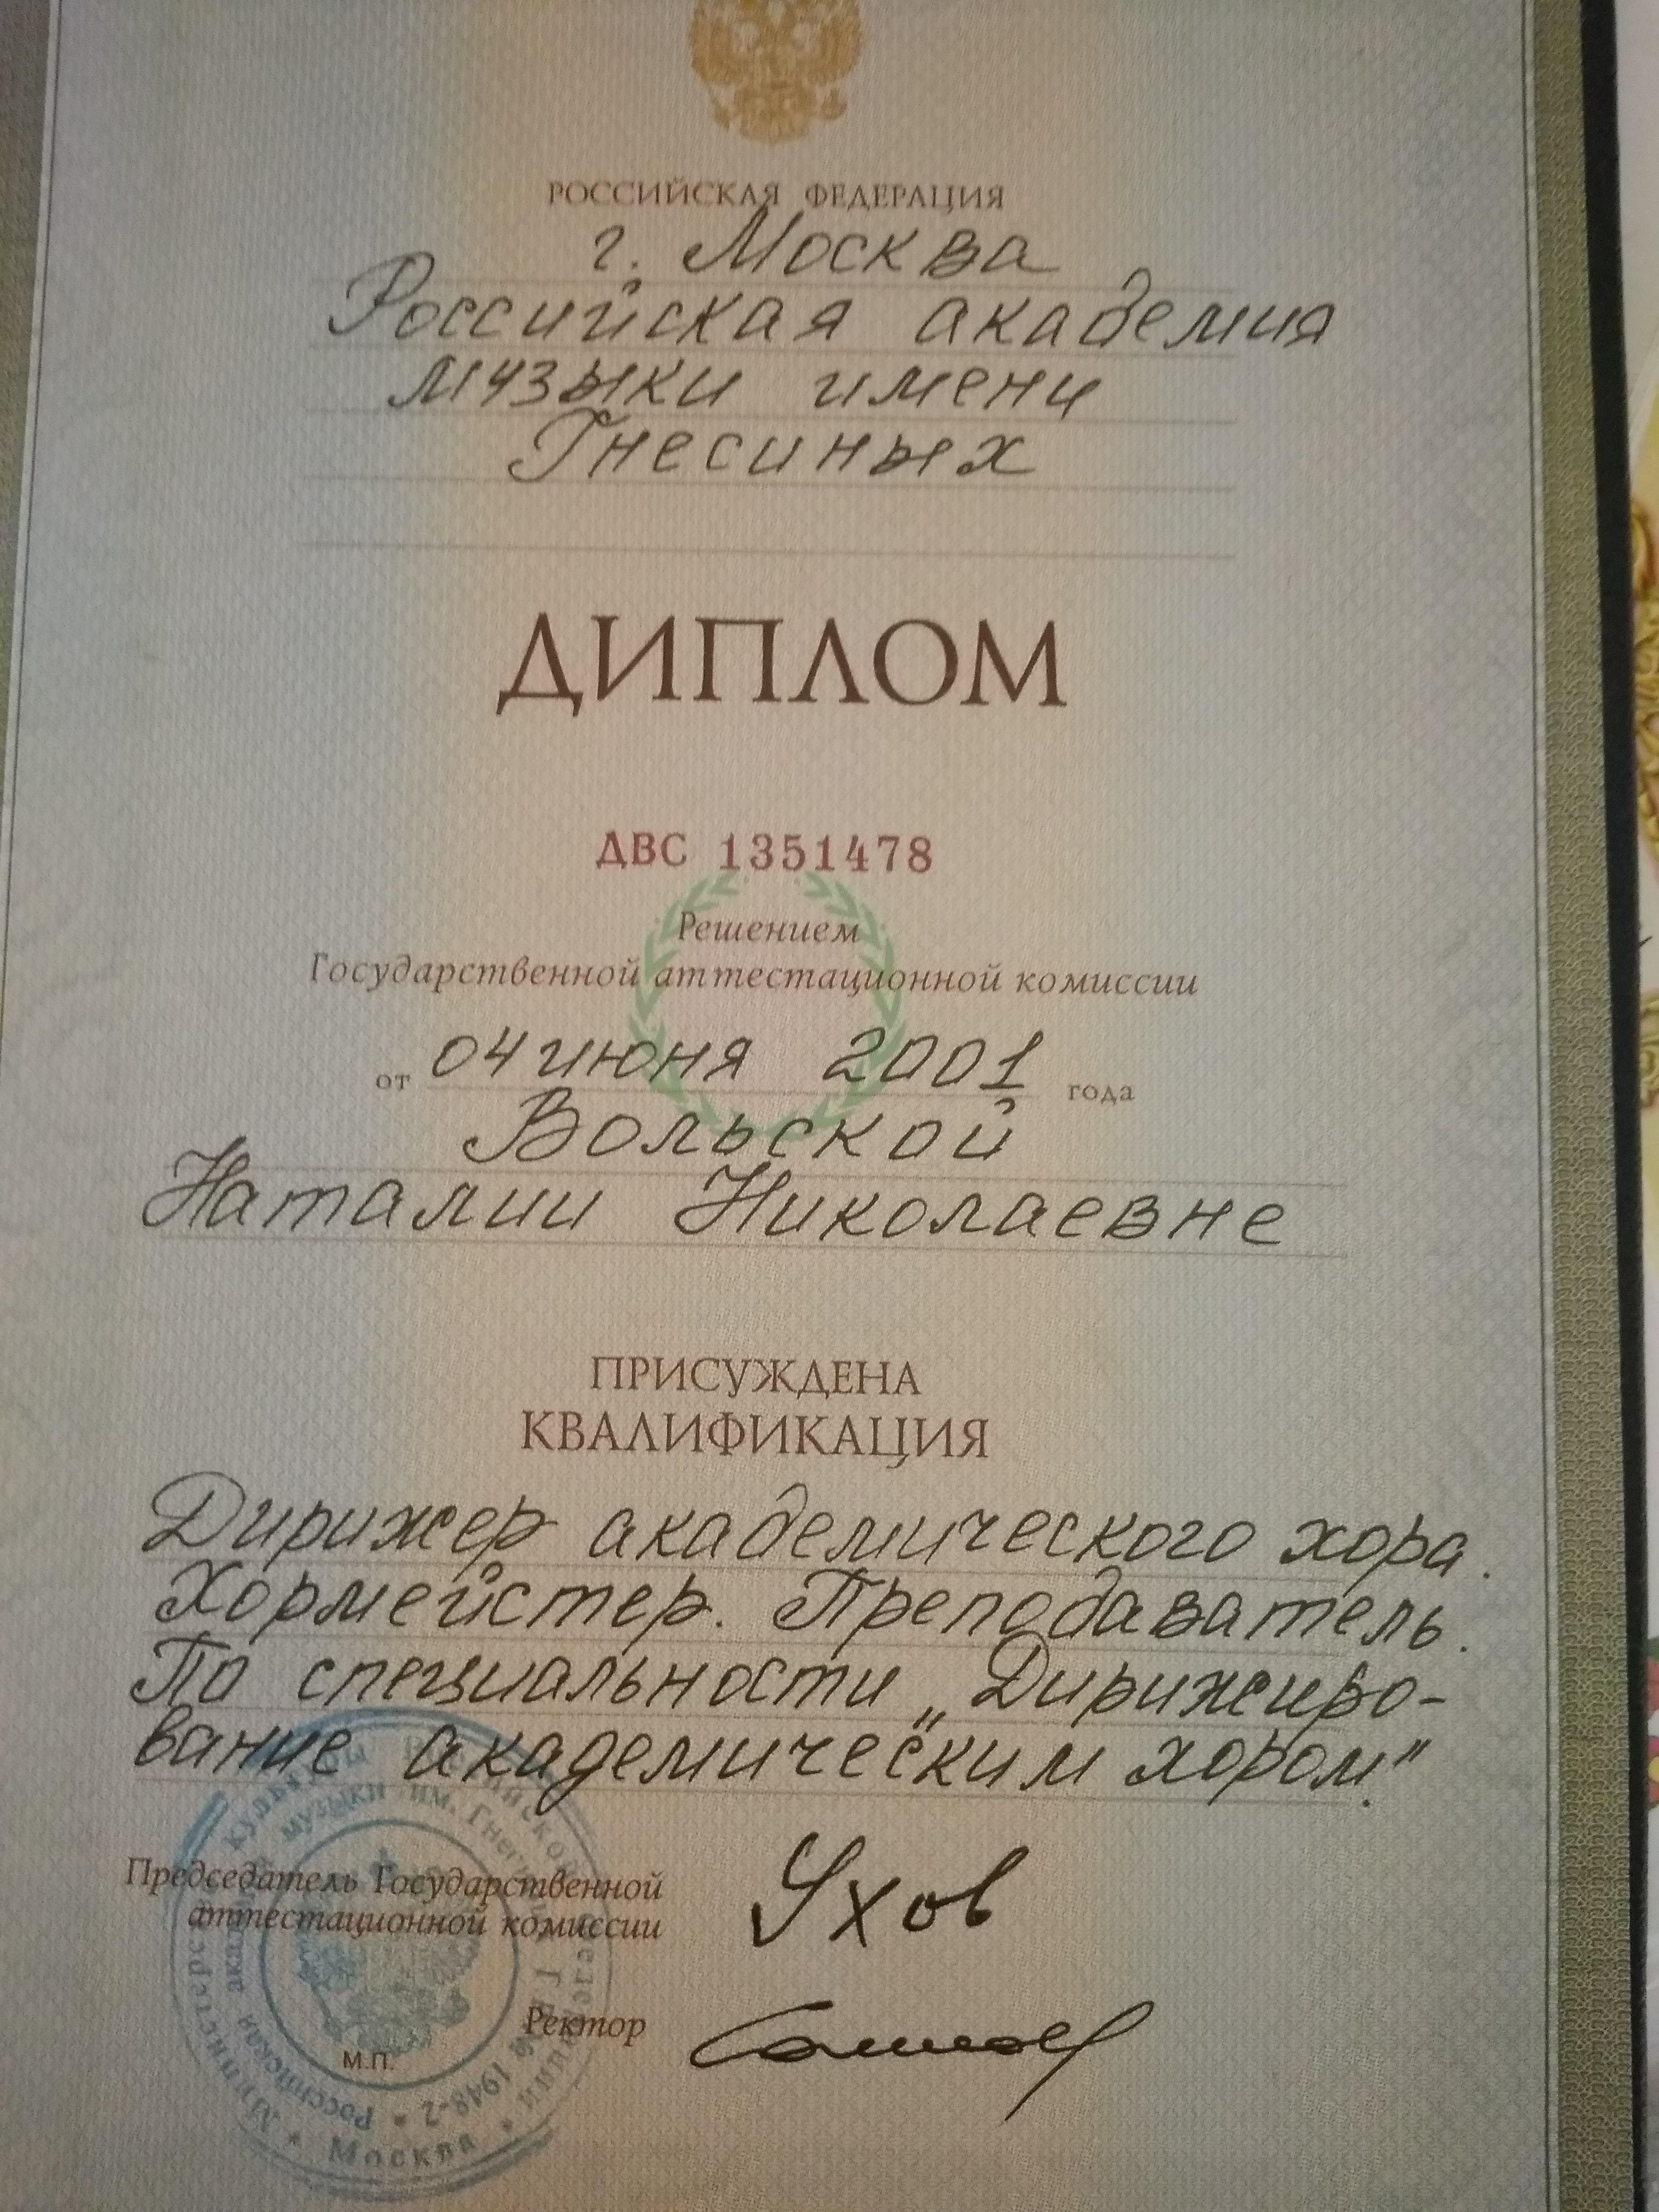 РОССИЙСКАЯ ФЕДЕРАЦИЯ
г. Москва
Российская академия
музыки имени
Гнесиных
ДИПЛОМ
ДВС 1351478
Решением
Государственной аттестационной комиссии
от 04 июня 2001 года
Вольской
Наталии Николаевне
ПРИСУЖДЕНА
КВАЛИФИКАЦИЯ
Дирижер академического хора.
Хормейстер. Преподаватель.
По специальности „Дирижиро-
вание академическим хором".
Председатель Государственной
аттестационной комиссии
Ухов
Ректор
М.П.
музыки им.
Российская
Москва